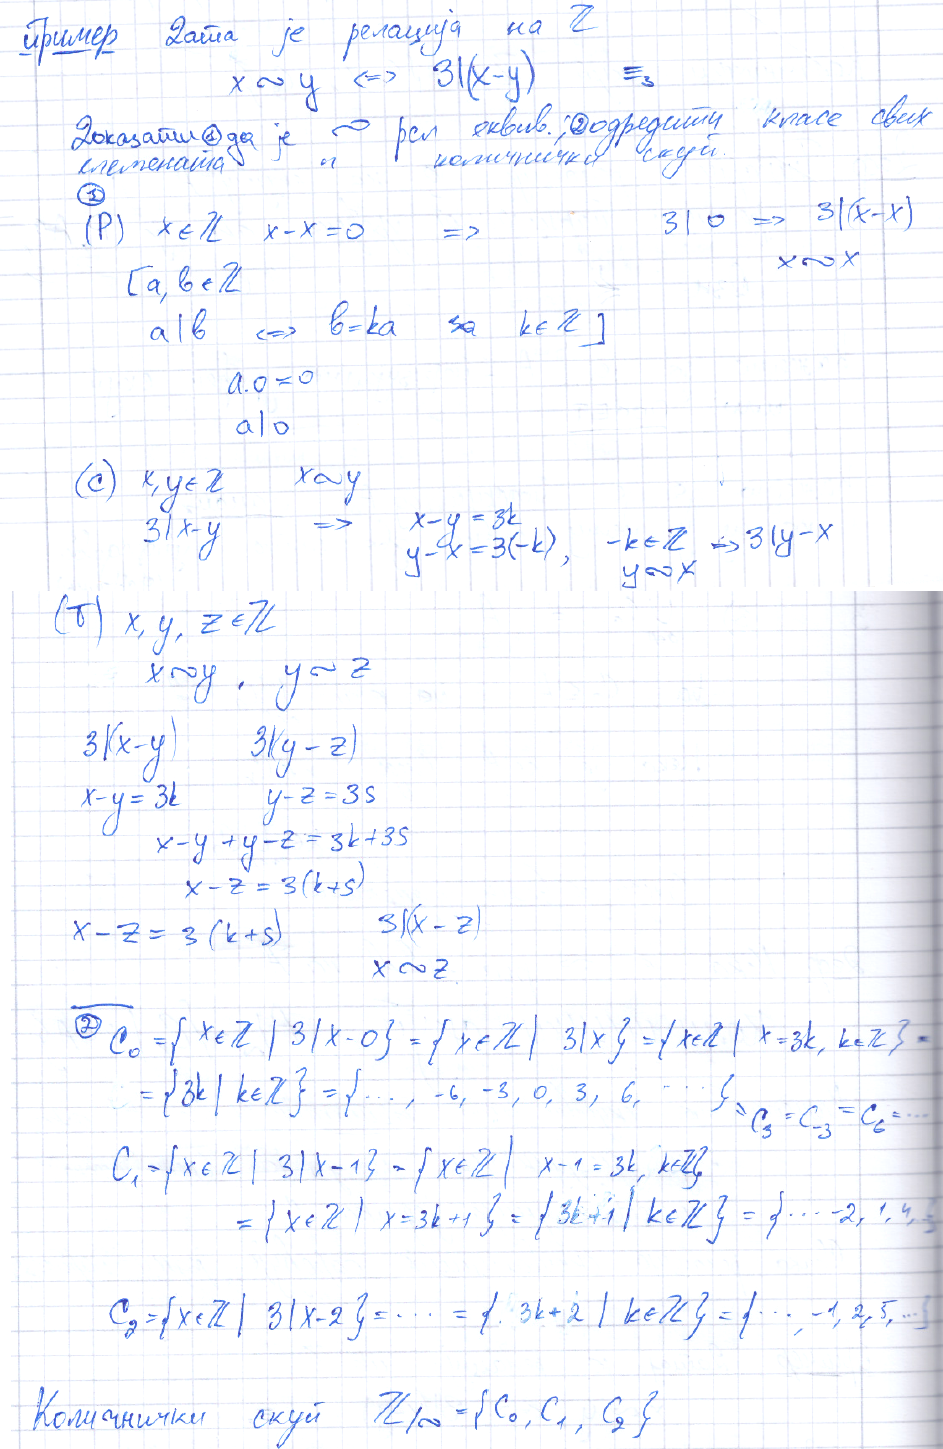 Пример Дата је релација на ℤ
x ~ y <=> 3|(x-y) ≡₃
Доказати ① да је ~ рел еквив. ; ② одредити класе свих
елемената и количнички скуп.
①
(Р) x∈ℤ x-x=0 => 3|0 => 3|(x-x)
x~x
[a, b∈ℤ
a|b <=> b=ka за k∈ℤ]
a·0=0
a|0
(С) x,y∈ℤ x~y
3|x-y => x-y=3k
y-x=3(-k), -k∈ℤ => 3|y-x
y~x
(Т) x, y, z∈ℤ
x~y, y~z
3|(x-y) 3|(y-z)
x-y=3k y-z=3s
x-y+y-z=3k+3s
x-z=3(k+s)
x-z=3(k+s) 3|(x-z)
x~z
② C₀={x∈ℤ | 3|x-0}={x∈ℤ | 3|x}={x∈ℤ | x=3k, k∈ℤ}=
={3k | k∈ℤ}={..., -6, -3, 0, 3, 6, ...}=C₃=C₋₃=C₆=...
C₁={x∈ℤ | 3|x-1}={x∈ℤ | x-1=3k, k∈ℤ}
={x∈ℤ | x=3k+1}={3k+1 | k∈ℤ}={... -2, 1, 4, ...}
C₂={x∈ℤ | 3|x-2}=...={3k+2 | k∈ℤ}={..., -1, 2, 5, ...}
Количнички скуп ℤ/~={C₀, C₁, C₂}